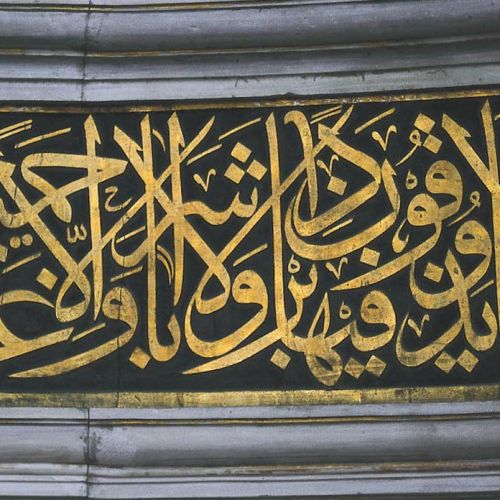 لا يذوقون فيها بردا ولا شرابا إلا حميما وغ